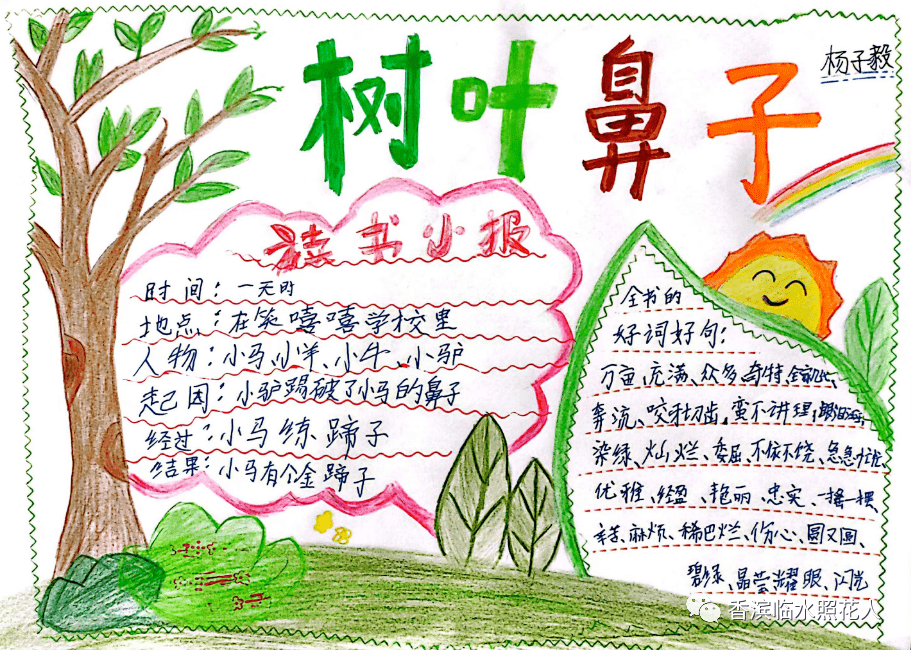 树叶鼻子
杨子毅
读书小报
时间：一天时
地点：在笑嘻嘻学校里
人物：小马、小羊、小牛、小驴
起因：小驴踢破了小马的鼻子
经过：小马练蹄子
结果：小马有个金蹄子
全书的
好词好句：
万亩、充满、众多、奇特、
奔流、咬牙切齿、蛮不讲理、
染绿、灿烂、委屈、不依不饶、急急忙忙
优雅、轻盈、艳丽、忠实、一摇一摆
辛苦、麻烦、稀巴烂、伤心、圆又圆、
碧绿、晶莹耀眼、闪光
香滨临水照花人